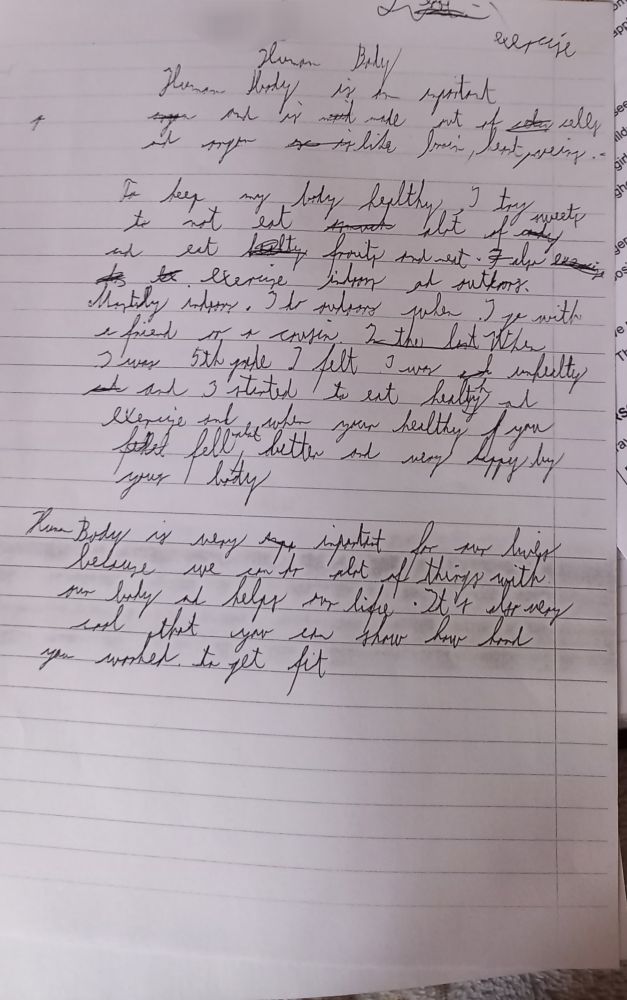 exercise
Human Body
Human Body is an inportant
and is made out of cells
ad organ is like brain, heart,
To keep my body healthy, I try
to not eat alot of sweets
and eat fruits and meat. I also
exercise indoors ad outdoors.
Mostily indoors. I do outdoors when I go with
a friend or a cousin. In the last When
I was 5th grade I felt I was unhealty
and I started to eat healty ad
exercise and when your healthy you
fell alot better and very happy by
your body
Human Body is very inportant for our lives
because we can do alot of things with
our body ad helps our life. It's also very
cool that you can show how hard
you worked to get fit